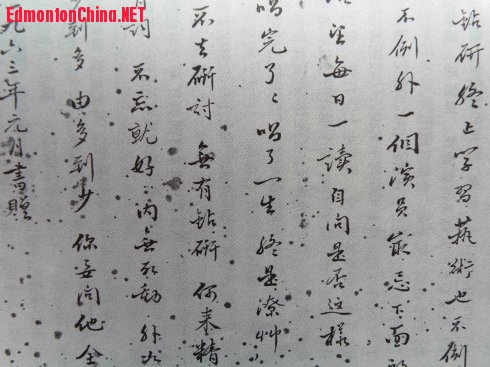 EdmontonChina.NET
钻研 终上学習 藝術也不倒
不例外 一個演員 最忌下面
望每日一讀 自问是否这样
唱完了々 唱了一生 终是潦艸
不去研討 無有钻研 何来精
不忘就好 内無 動 外
到多 由多到少 你要问他全
一九六三年元月書贈